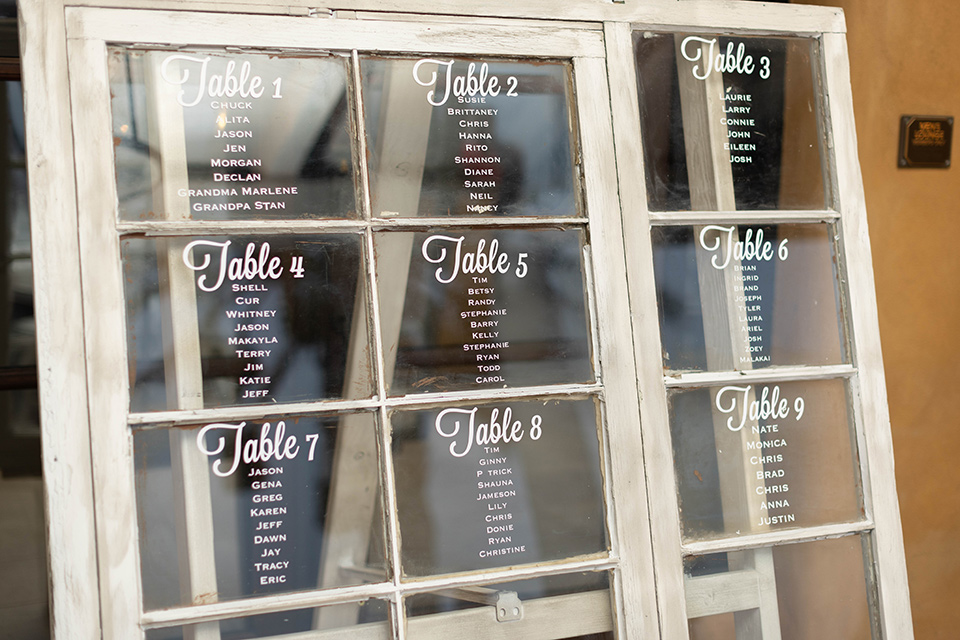 Table 1
Chuck
Lita
Jason
Jen
Morgan
Declan
Grandma Marlene
Grandpa Stan
Table 2
Susie
Brittaney
Chris
Hanna
Rito
Shannon
Diane
Sarah
Neil
Nancy
Table 3
Laurie
Larry
Connie
John
Eileen
Josh
Table 4
Shell
Cur
Whitney
Jason
Makayla
Terry
Jim
Katie
Jeff
Table 5
Tim
Betsy
Randy
Stephanie
Barry
Kelly
Stephanie
Ryan
Todd
Carol
Table 6
Brian
Ingrid
Brand
Joseph
Tyler
Laura
Ariel
Josh
Zoey
Malakai
Table 7
Jason
Gena
Greg
Karen
Jeff
Dawn
Jay
Tracy
Eric
Table 8
Tim
Ginny
P trick
Shauna
Jameson
Lily
Chris
Donie
Ryan
Christine
Table 9
Nate
Monica
Chris
Brad
Chris
Anna
Justin